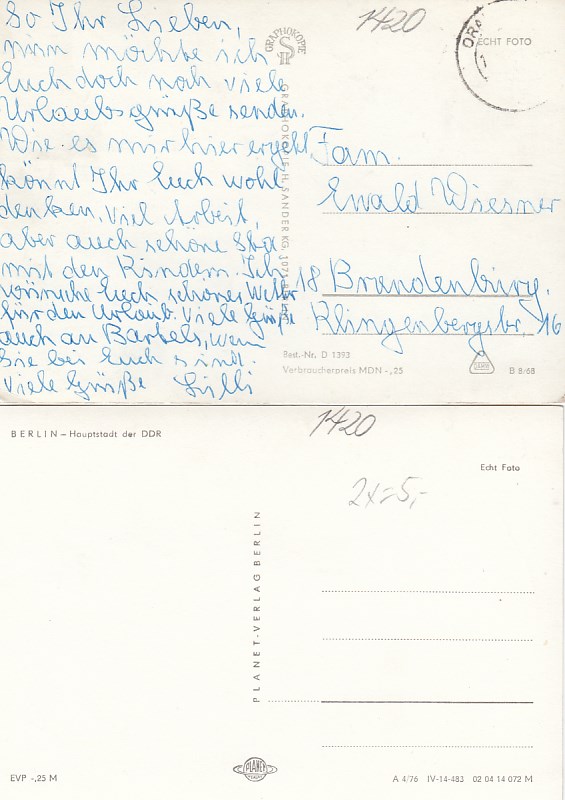 So Ihr Lieben,
nun möchte ich
Euch doch noch viele
Urlaubsgrüße senden.
Wie es mir hier ergeht
könnt Ihr Euch wohl
denken, viel Arbeit,
aber auch schöne Std.
mit den Kindern. Ich
wünsche Euch schönes Wetter
für den Urlaub. Viele Grüße
auch an Bartels, wenn
Sie bei Euch sind.
Viele Grüße Lilli
1420
GRAPHOKOPIE
ECHT FOTO
ORA
GRAPHOKOPIE H. SANDER KG, 1071
Fam.
Ewald Wiesner
18 Brandenburg.
Klingenbergstr. 16
Best.-Nr. D 1393
Verbraucherpreis MDN -,25
B 8/68
1420
BERLIN – Hauptstadt der DDR
Echt Foto
2x=5,-
PLANET-VERLAG BERLIN
PLANET
EVP -,25 M
A 4/76 IV-14-483 02 04 14 072 M